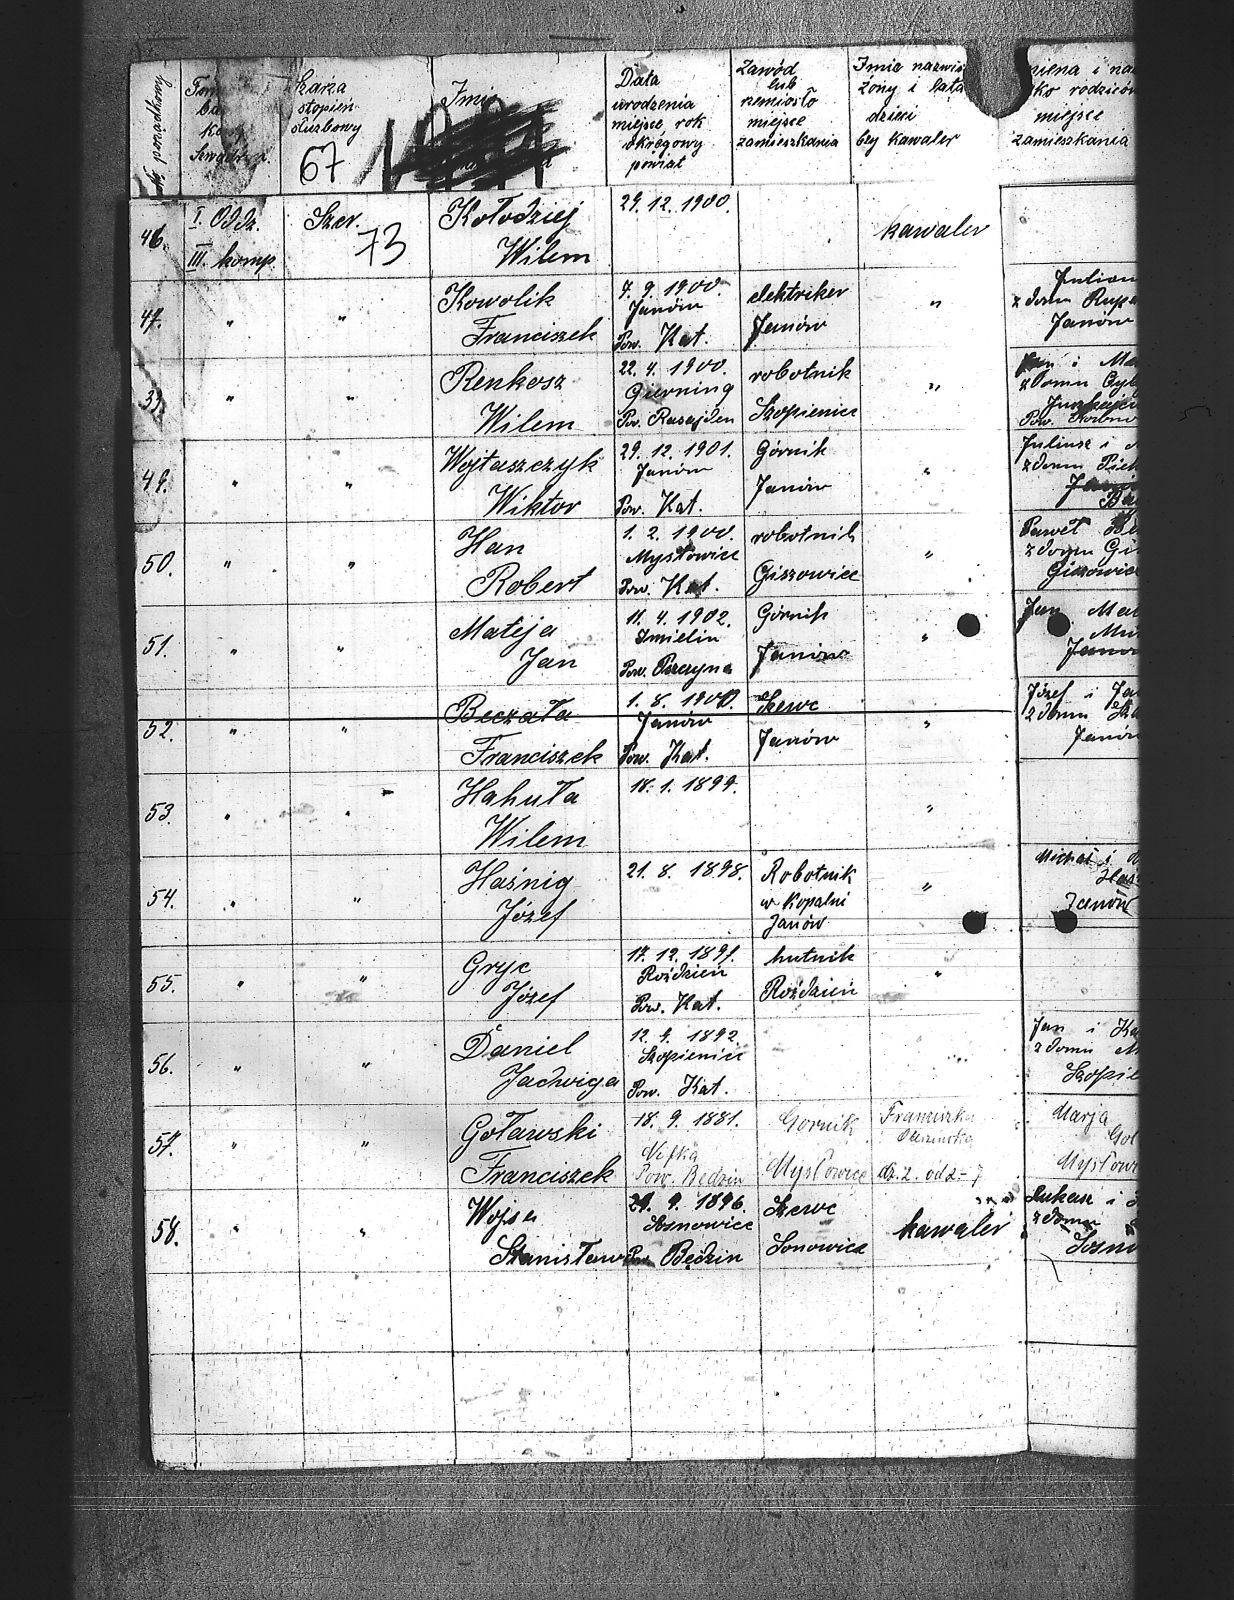 porządkowy
Szarża
stopień
służbowy
67
Imię
Data
urodzenia
miejsce rok
okręgowy
powiat
Zawód
lub
rzemiosło
miejsce
zamieszkania
Imię nazwis
żony i lata
dzieci
czy kawaler
miena i na
ko rodziców
miejsce
zamieszkania
46.
I. Oddz.
III. komp.
Szer.
73
Kołodziej
Wilem
29. 12. 1900.
kawaler
47.
"
"
Kowolik
Franciszek
7. 9. 1900.
Janów
Pow. Kat.
elektriker
Janów
"
Julian
z domu Rup
Janów
"
"
Renkosz
Wilem
22. 4. 1900.
Pow.
robotnik
Szopienice
"
i Ma
z domu
Pow.
49.
"
"
Wojtaszczyk
Wiktor
29. 12. 1901.
Janów
Pow. Kat.
Górnik
Janów
"
Juliusz i
z domu
50.
"
"
Han
Robert
1. 2. 1900.
Mysłowice
Pow. Kat.
robotnik
Giszowice
"
Paweł
z domu Gi
Giszowice
51.
"
"
Mateja
Jan
11. 4. 1902.
Imielin
Pow. Pszczyna
Górnik
Janów
"
Jan Ma
Janów
52.
"
"
Beczała
Franciszek
1. 8. 1900.
Janów
Pow. Kat.
Szewc
Janów
"
Józef i Ja
z domu
Janów
53.
"
"
Hahuła
Wilem
18. 1. 1899.
"
54.
"
"
Haśnig
Józef
21. 8. 1898.
Robotnik
w kopalni
Janów
"
Michał i
Janów
55.
"
"
Gryc
Józef
17. 12. 1897.
Roździeń
Pow. Kat.
hutnik
Roździeń
"
56.
"
"
Daniel
Jadwiga
12. 9. 1892.
Szopienice
Pow. Kat.
"
Jan i Ka
z domu
Szopie
57.
"
"
Goławski
Franciszek
18. 9. 1881.
Nifka
Pow. Będzin
Gornik
Mysłowice
Franciszka
dz. 2. od 2-7
Marja
Goł
Mysłow
58.
"
"
Wojsa
Stanisław
9. 1896.
Sosnowice
Pow. Będzin
Szewc
Sonowice
kawaler
Łukasz i
z domu
Sosno